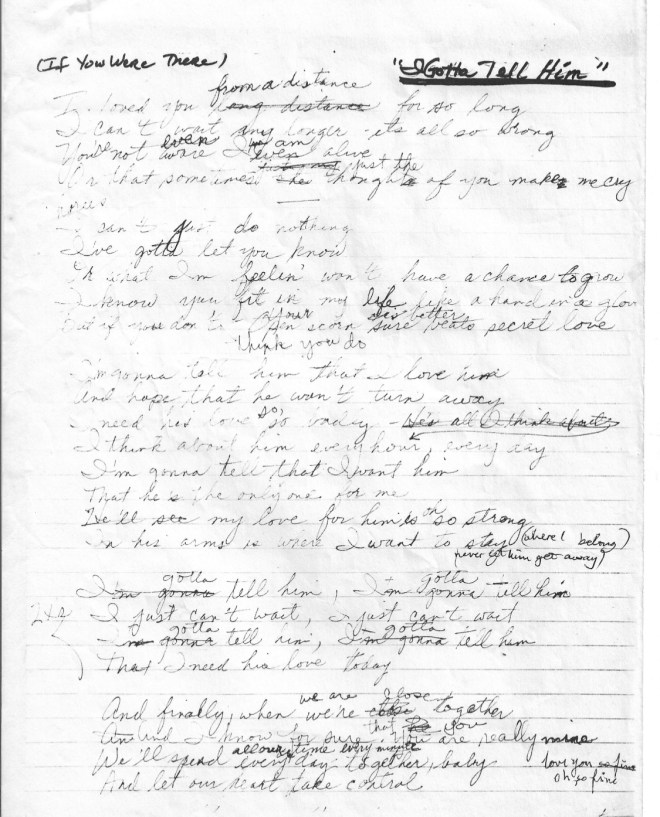 (If You Were There)
"I Gotta Tell Him"
from a distance
I loved you long distance for so long
I can't wait any longer - its all so wrong
even am
You're not aware I even alive
just the
Or that sometimes the thought of you makes me cry
I can't just do nothing
I've gotta let you know
Or what I'm feelin' won't have a chance to grow
I know you fit in my life like a hand in a glove
your better
But if you don't - Open scorn sure beats secret love
think you do
I'm gonna tell him that I love him
And hope that he won't turn away
so,
I need his love so badly - He's all I think about
I think about him every hour, every day
I'm gonna tell that I want him
That he is the only one for me
oh
He'll see my love for him is so strong
In his arms is where I want to stay (where I belong)
(never let him get away)
gotta gotta
I'm gonna tell him, I'm gonna tell him
2x
I just can't wait, I just can't wait
gotta gotta
I'm gonna tell him, I'm gonna tell him
That I need his love today
we are close
And finally, when we're together
that you
And I know for sure You are really mine
all our time every minute
We'll spend every day together, baby
love you so fine
oh, so fine
And let our heart take control